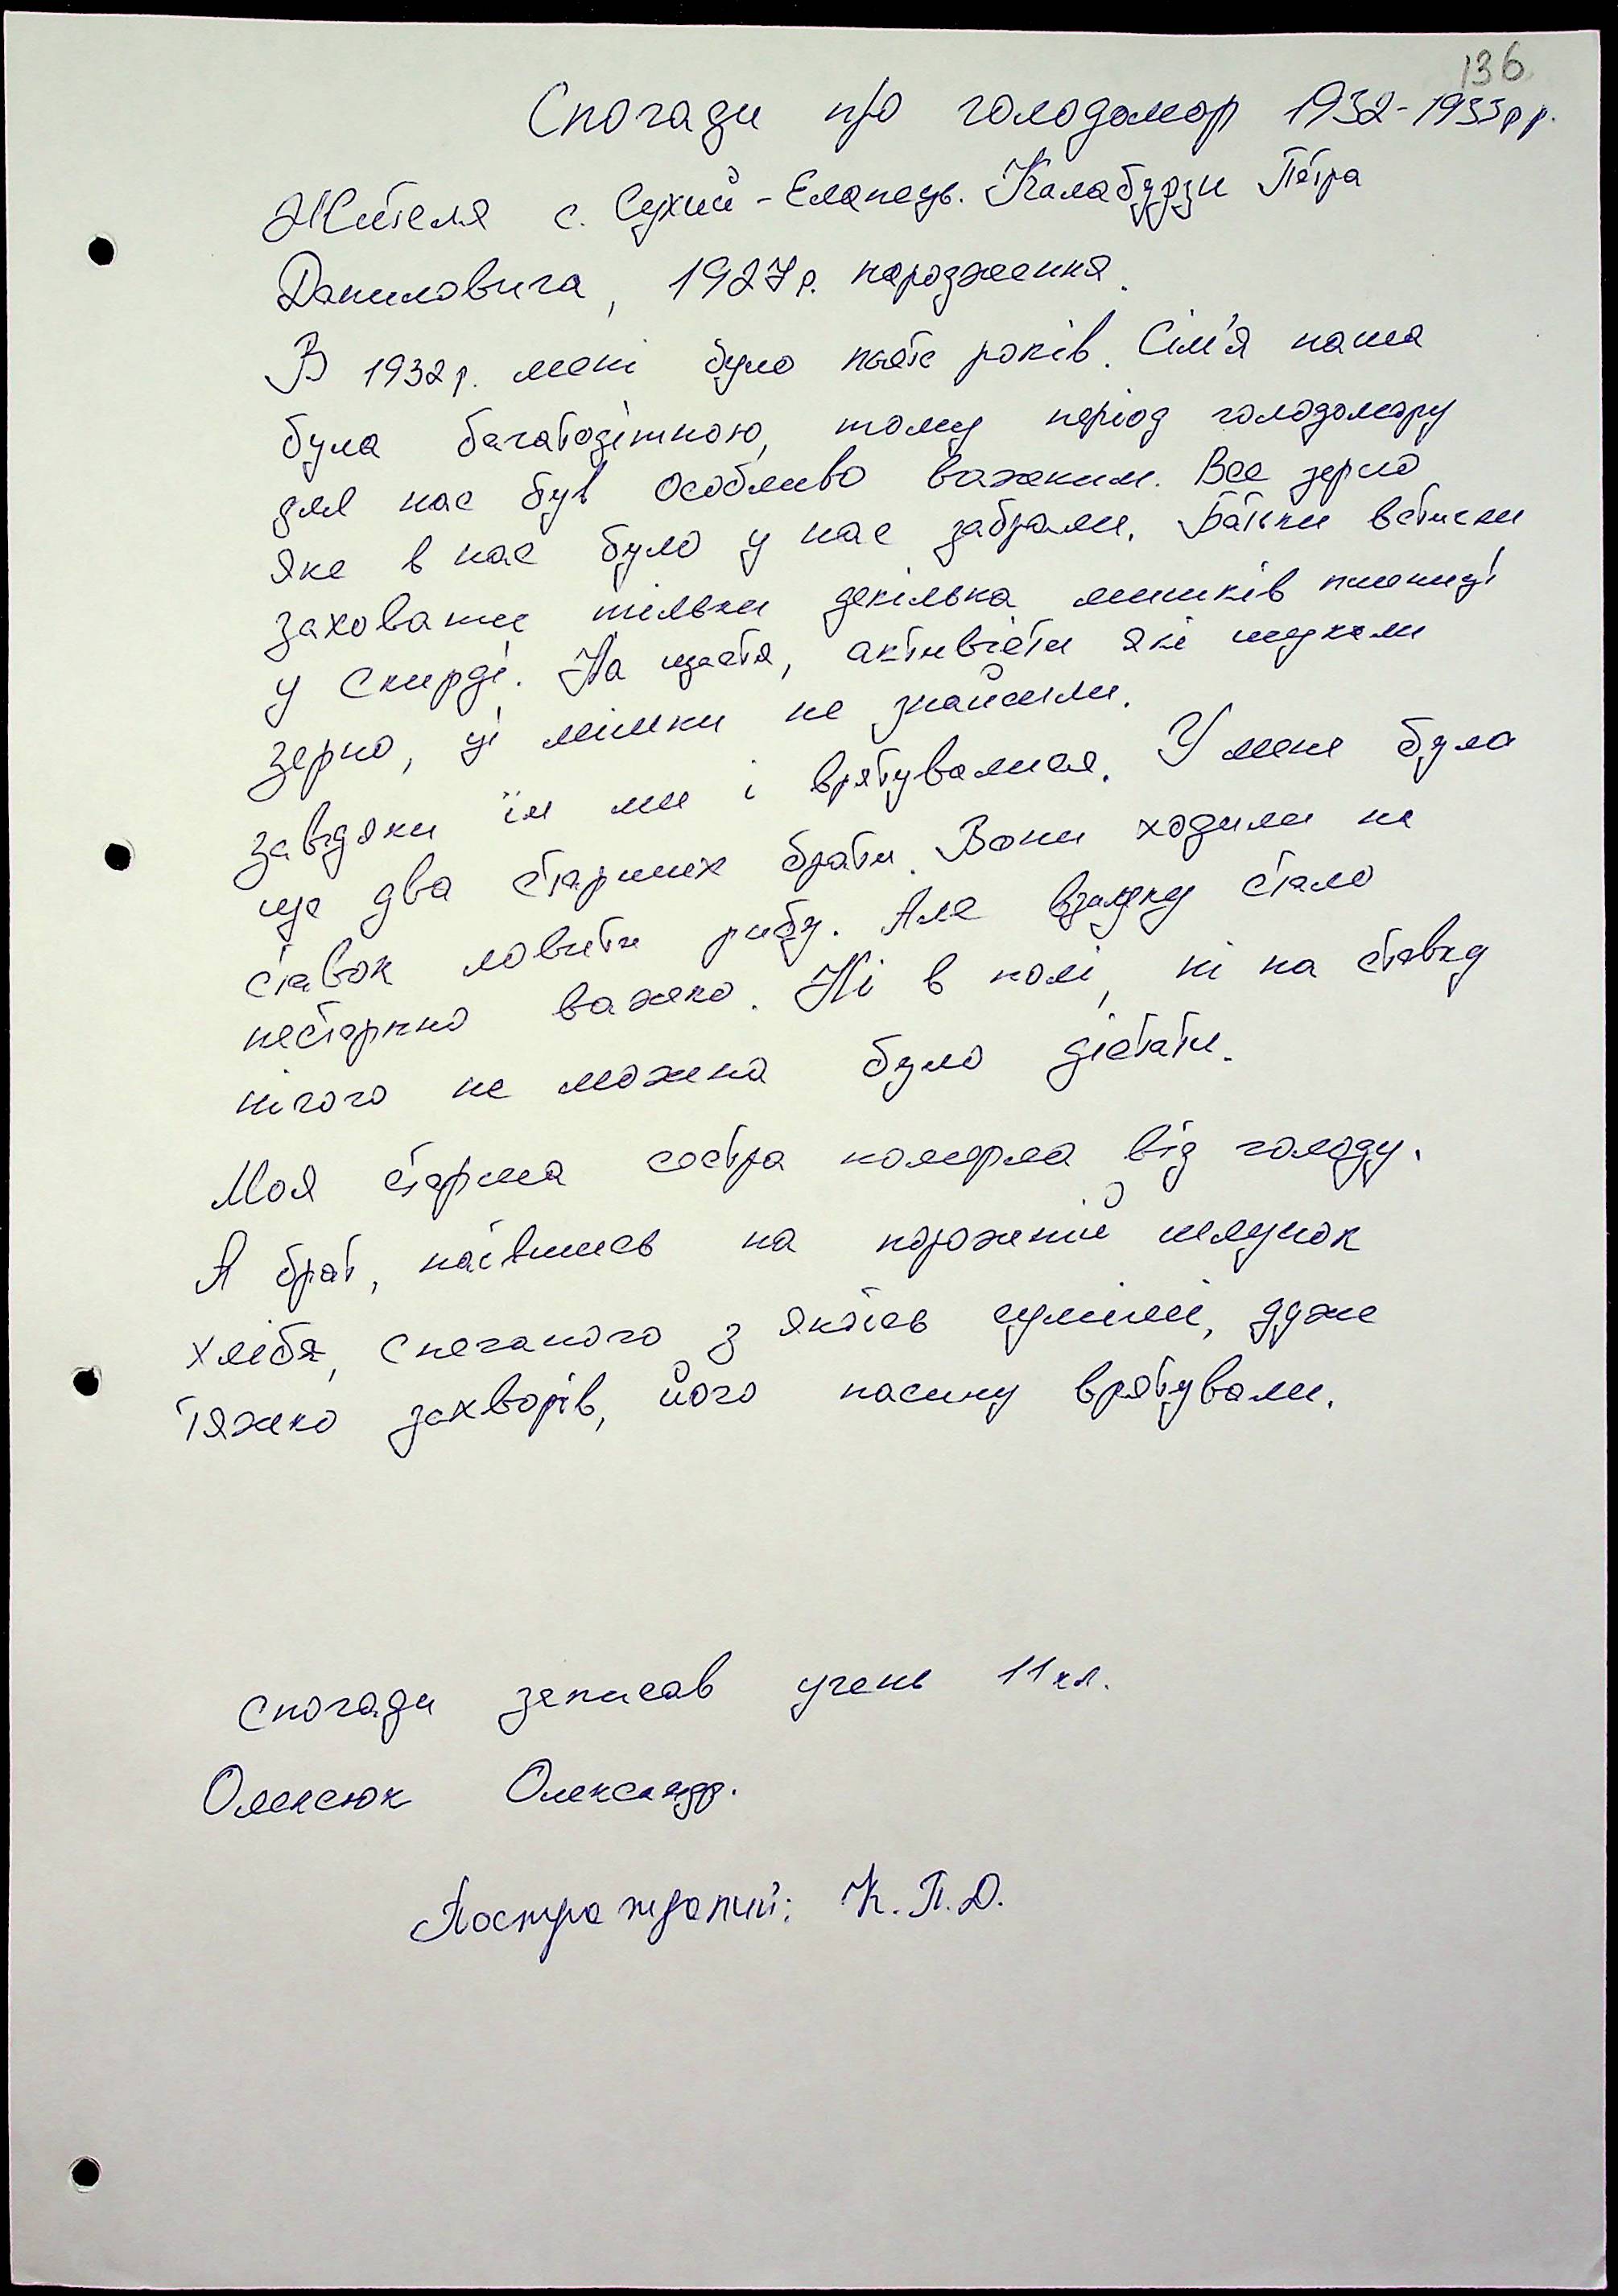 136
Спогади про голодомор 1932-1933рр.
Жителя с. Сухий-Єланець. Калабурзи Петра
Даниловича, 1927р. народження.
В 1932р. мені було пять років. Сім'я наша
була багатодітною, тому період голодомору
для нас був особливо важким. Все зерно
яке в нас було у нас забрали. Батьки встигли
заховати тільки декілька мішків пшениці
у скирді. На щастя, активісти які шукали
зерно, ці мішки не знайшли.
Завдяки їм ми і врятувалися. У мене було
ще два старших брати. Вони ходили на
ставок ловити рибу. Але взимку стало
нестерпно важко. Ні в полі, ні на ставку
нічого не можна було дістати.
Моя старша сестра померла від голоду.
А брат, наївшись на порожній шлунок
хліба, спеченого з якоїсь суміші, дуже
тяжко захворів, його насилу врятували.
Спогади записав учень 11 кл.
Олексюк Олександр.
Постраждалий: К.П.Д.